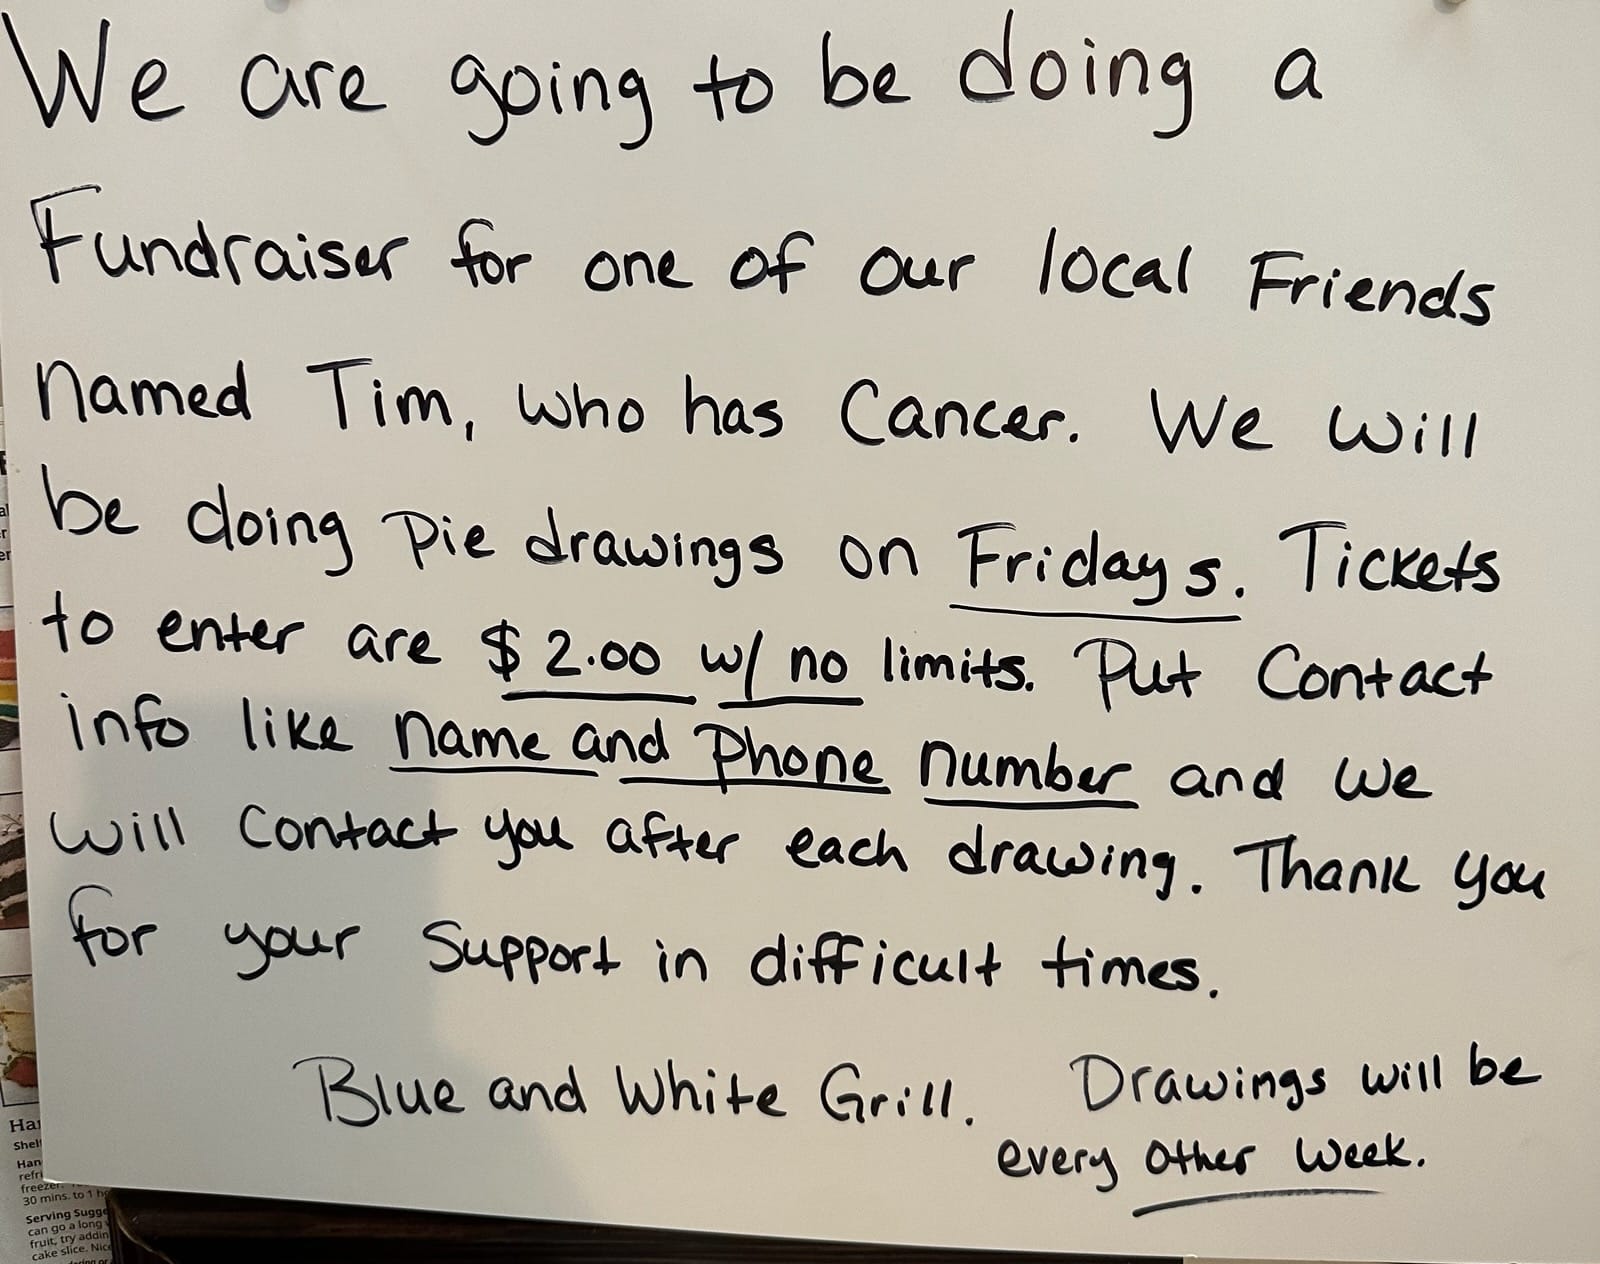 We are going to be doing a
Fundraiser for one of our local Friends
named Tim, who has Cancer. We will
be doing pie drawings on Fridays. Tickets
to enter are $2.00 w/ no limits. Put Contact
info like name and phone number and we
will contact you after each drawing. Thank you
for your Support in difficult times.
Blue and White Grill.
Drawings will be
every other week.
Shel
Han
refri
freezer.
30 mins. to 1 h
Serving Sugge
can go a long
fruit, try addin
cake slice. Nice